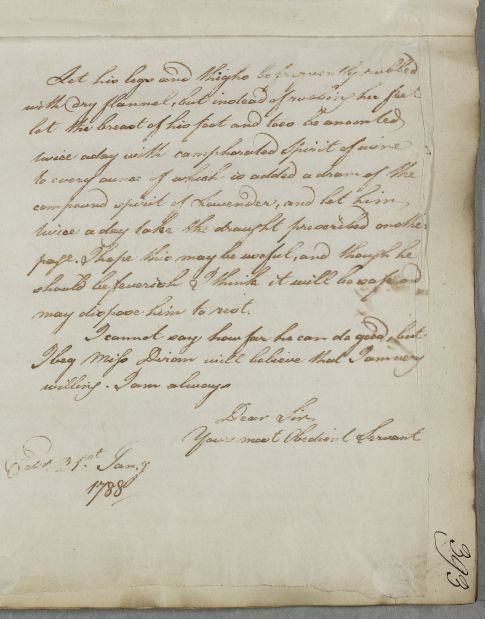 Let his legs and thighs be frequently rubbed
with dry flannel, but instead of rubbing his feet
let the breast of his foot and toes be anointed
twice a day with camphorated Spirit of wine
to every ounce of which is added a dram of the
compound spirit of Lavender, and let him
twice a day take the draught prescribed on the
page. I hope this may be useful, and though he
should be feverish I think it will be safe, and
may dispose him to rest.
I cannot say how far he can do good, but
I beg Miss Dirom will believe that I am very
willing. I am always
Dear Sir,
Your most Obedient Servant
31st Jany
1788
393